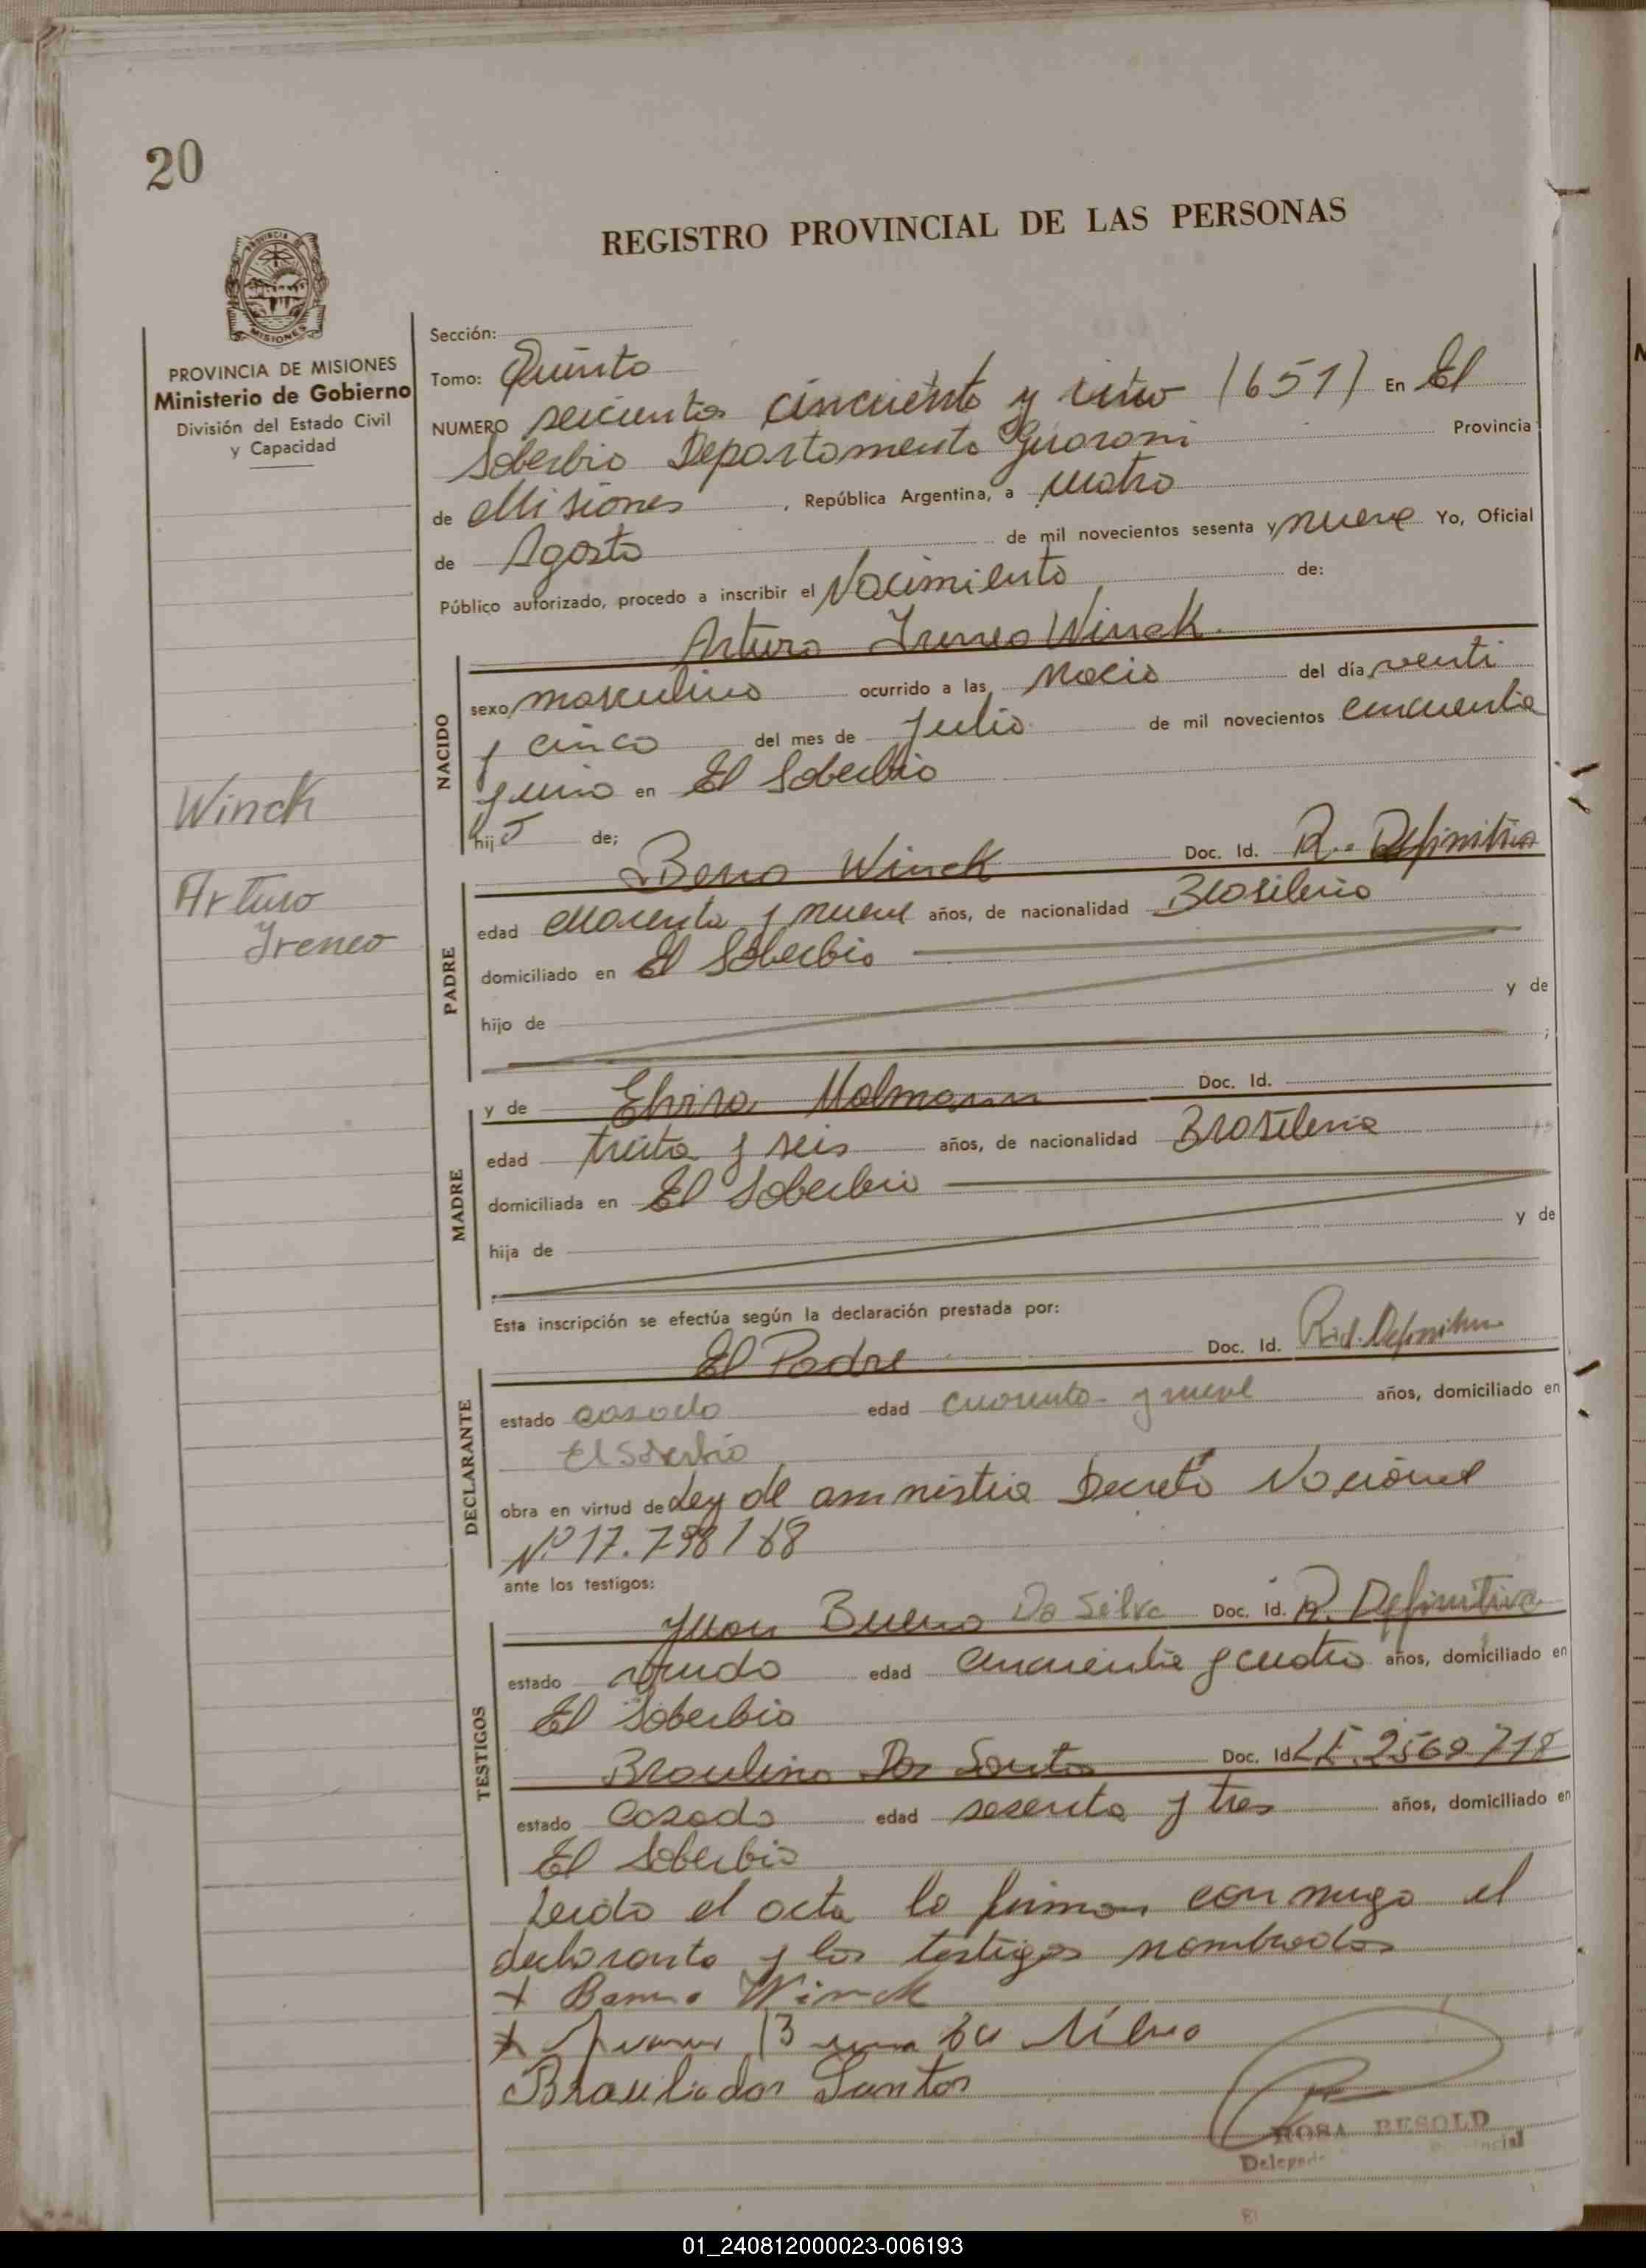 20
REGISTRO PROVINCIAL DE LAS PERSONAS
PROVINCIA DE MISIONES
Ministerio de Gobierno
División del Estado Civil
y Capacidad
Winck
Arturo
Ireneo
Sección:
Tomo: Quinto
NUMERO seicientos cincuenta y uno (651) En El
Soberbio Departamento Guarani Provincia
de Misiones, República Argentina, a cuatro
de Agosto de mil novecientos sesenta y nueve Yo, Oficial
Público autorizado, procedo a inscribir el Nacimiento de:
Arturo Ireneo Winck.
NACIDO
sexo masculino ocurrido a las Nacio del día venti
y cinco del mes de Julio de mil novecientos cincuenta
y uno en El Soberbio
hijo de;
Beno Winck Doc. Id. R. Definitiva
PADRE
edad cuarenta y nueve años, de nacionalidad Brasileño
domiciliado en El Soberbio
hijo de y de
;
y de Elvira Malmann Doc. Id.
MADRE
edad treita y seis años, de nacionalidad Brasileña
domiciliada en El Soberbio
hija de y de
Esta inscripción se efectúa según la declaración prestada por:
El Padre Doc. Id. Rid. Definitiva
DECLARANTE
estado casado edad cuarenta y nueve años, domiciliado en
El Soberbio
obra en virtud de Ley de amnistia Decreto Nacional
Nº 17.798/68
ante los testigos:
Juan Bueno Da Silva Doc. Id. R. Definitiva
TESTIGOS
estado viudo edad cincuenta y cuatro años, domiciliado en
El Soberbio
Braulino Dos Santos Doc. Id L.E. 2569718
estado Casado edad sesenta y tres años, domiciliado en
El Soberbio
Leida el acta la firman conmigo el
declarante y los testigos nombrados
+ Benno Winck
Braulio dos Santos
ROSA BESOLD
01_240812000023-006193